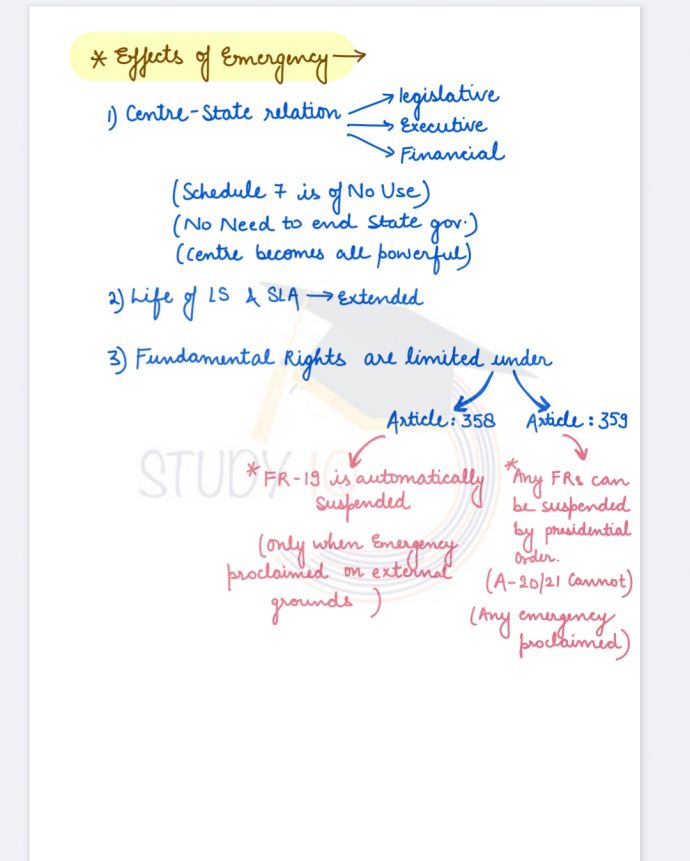 * Effects of Emergency →
1) Centre-State relation → legislative
→ Executive
→ Financial
(Schedule 7 is of No Use)
(No Need to end State gov.)
(Centre becomes all powerful)
2) Life of LS & SLA → Extended
3) Fundamental Rights are limited under
Article: 358 Article: 359
* FR-19 is automatically
suspended
(only when Emergency
proclaimed on external
grounds)
* Any FRs can
be suspended
by presidential
order.
(A-20/21 Cannot)
(Any emergency
proclaimed)
STUDY IQ